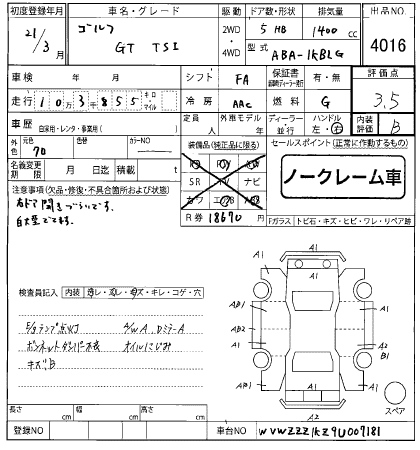 初度登録年月 車名・グレード 駆動 ドア数・形状 排気量 出品NO.
21/3月 ゴルフ 2WD 5 HB 1400 cc 4016
GT TSI 4WD 型式 ABA-1KBLG
車検 年 月 シフト FA 保証書 有・無 評価点
走行 10万3千855 キロ・マイル 冷房 AAC 燃料 G 3.5
車歴 自家用・レンタ・事業用( ) 定員 人 外車モデル 年 ディーラー・並行 ハンドル 左・右 内装評価 B
外色 元色 色替 カラーNO 装備品(純正品に限る) セールスポイント(正常に作動するもの)
70
名義変更期限 月 日迄 積載量 t SR TV ナビ ノークレーム車
注意事項(欠品・修復・不具合箇所および状態) カワ エアB AB
R券 18670 円 Fガラス トビ石・キズ・ヒビ・ワレ・リペア跡
A1
A1 A1
検査員記入 内装 スレ・コレ・キズ・キレ・コゲ・穴
AB1 A1
AB2 A2
A1 B1
E/gランプ点灯 A/W A DミラーA
ボンネットダンパー不良 オイルにじみ
キズB AB1 A1
A2 スペア
長さ cm 幅 cm 高さ cm
登録NO 車台NO WVWZZZ1KZ9U007181